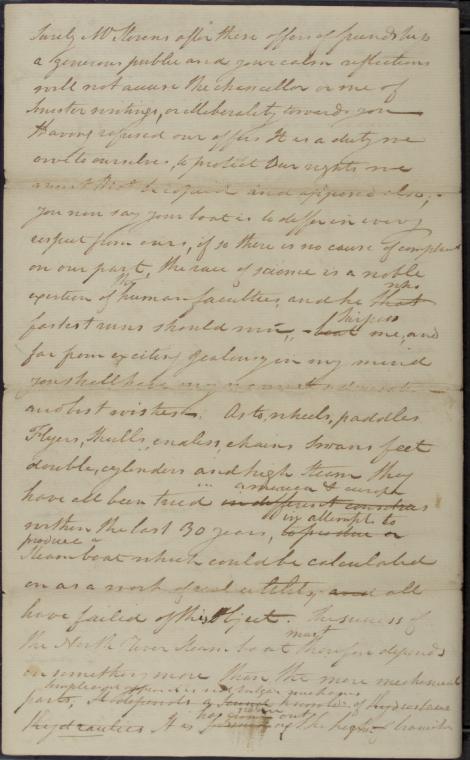 Surely Mr Stevens after these offers of friendship
a generous public and your calm reflections
will not accuse the chancellor or me of
sinester writings, or illiberality towards you
Having refused our offers It is a duty we
owe to ourselves, to protect Our rights we
must not be and opposed also,
you now say your boat is to differ in every
respect from ours, if so there is no cause of complaint
on our part, the race of science is a noble
exertion of the human faculties, and he that who
fastest runs should win, beat surpass me, and
far from exciting jealousy in my mind
you shall have my
and best wishes. As to, wheels, paddles
Flyers, skulls, endless, chains Swans feet
double, cylinders and high steam they
have all been tried in different countries america & europe
within the last 30 years, to produce or in attempt to
produce a
Steam boat which could be calculated
on as a work of real utility, and all
have failed of the object. The success of
the North River Steam boat must therefore depends
on something more than the mere mechanical
parts, It depends
Hydraulics It is out the